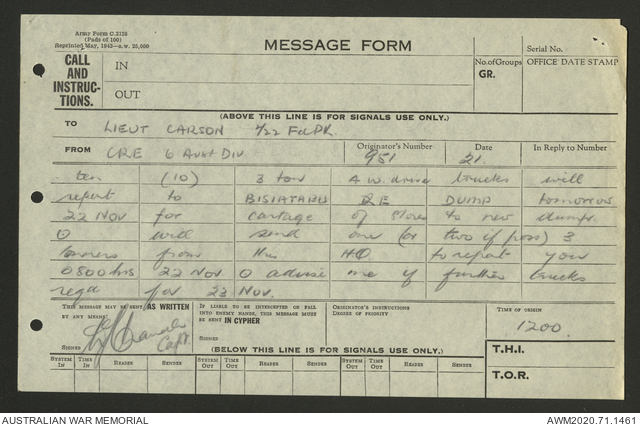 Army Form C.2128
(Pads of 100)
Reprinted May, 1943—a.w. 25,000
MESSAGE FORM
Serial No.
CALL AND INSTRUC-TIONS.
IN
OUT
No. of Groups
GR.
OFFICE DATE STAMP
(ABOVE THIS LINE IS FOR SIGNALS USE ONLY.)
TO LIEUT CARSON 2/22 Fd Pk
FROM CRE 6 Aust Div
Originator's Number 951
Date 21
In Reply to Number
ten (10) 3 ton 4 W. drive trucks will
report to BISIATABU RE DUMP tomorrow
22 NOV for cartage of stores to new dump.
O will send one (or two if poss) 3
tonners from this HQ to report you
0800hrs 22 NOV O advise me if further trucks
reqd for 23 NOV.
THIS MESSAGE MAY BE SENT AS WRITTEN BY ANY MEANS.
SIGNED Capt
IF LIABLE TO BE INTERCEPTED OR FALL INTO ENEMY HANDS, THIS MESSAGE MUST BE SENT IN CYPHER
SIGNED
ORIGINATOR'S INSTRUCTIONS
DEGREE OF PRIORITY
TIME OF ORIGIN
1200.
(BELOW THIS LINE IS FOR SIGNALS USE ONLY.)
T.H.I.
T.O.R.
SYSTEM IN TIME IN READER SENDER SYSTEM OUT TIME OUT READER SENDER SYSTEM OUT TIME OUT READER SENDER
AUSTRALIAN WAR MEMORIAL
AWM2020.71.1461